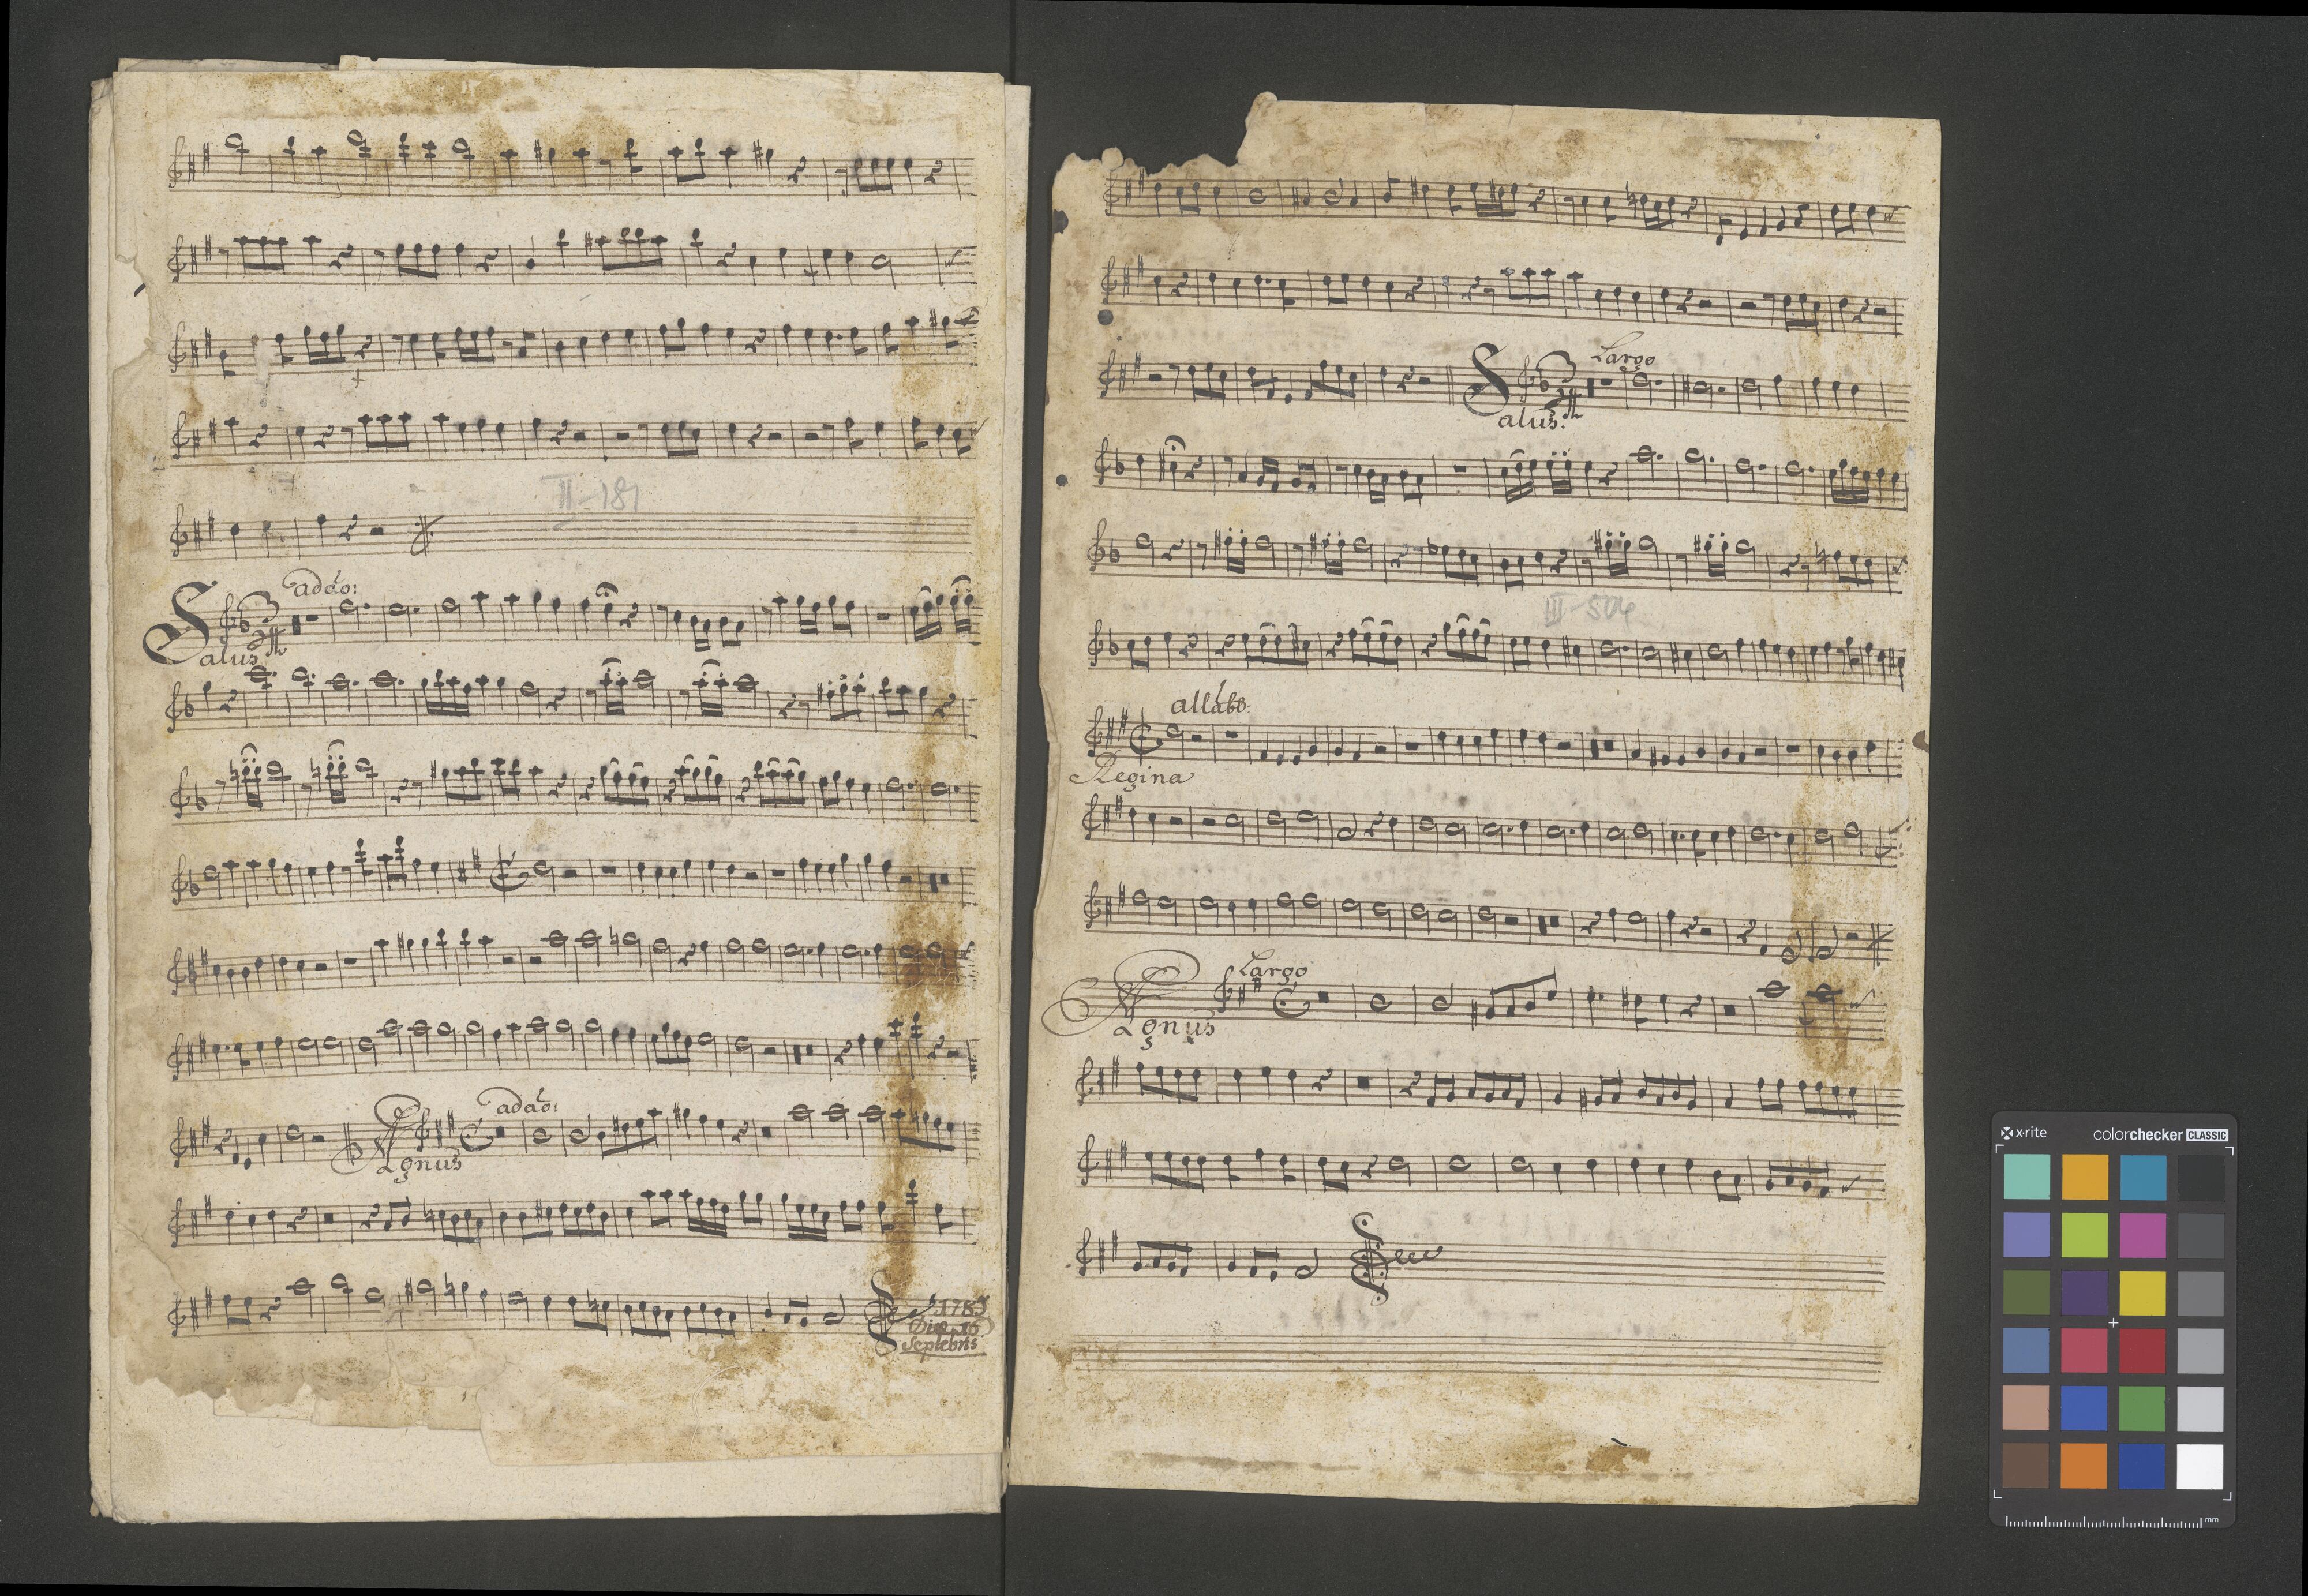 II-181
adaᵒ:
Salus
adaᵒ:
Agnus
Die 16
Septebris
Largo
Salus:
III-504
allabᵒ:
Regina
Largo
Agnus
x-rite
colorchecker CLASSIC
mm